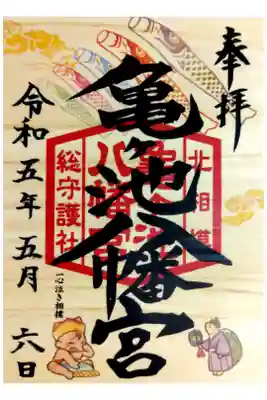 奉拝
亀ヶ池八幡宮
北相模
亀ヶ池
八幡宮
総守護社
令和五年五月 六日
一心泣き相撲